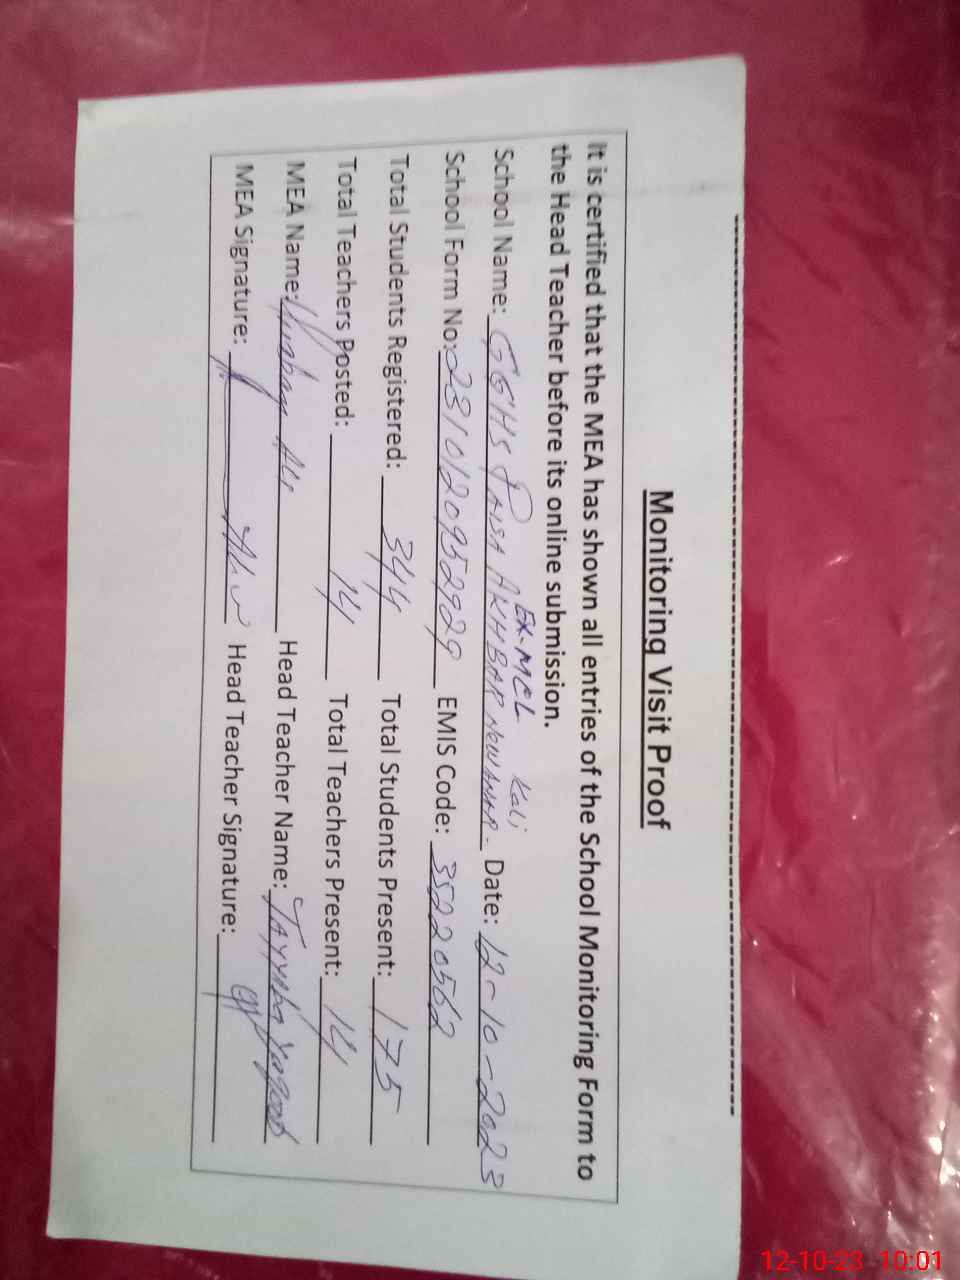 Monitoring Visit Proof
It is certified that the MEA has shown all entries of the School Monitoring Form to
the Head Teacher before its online submission.
EX-MCL Kali
School Name: GGHS PAISA AKHBAR NEW ANAR- Date: 12-10-2023
School Form No: 2310120952929 EMIS Code: 35220562
Total Students Registered: 344 Total Students Present: 175
Total Teachers Posted: 14 Total Teachers Present: 14
MEA Name: Ali Head Teacher Name: Tayyeba Yaqoob
MEA Signature: Head Teacher Signature:
12-10-23 10:01